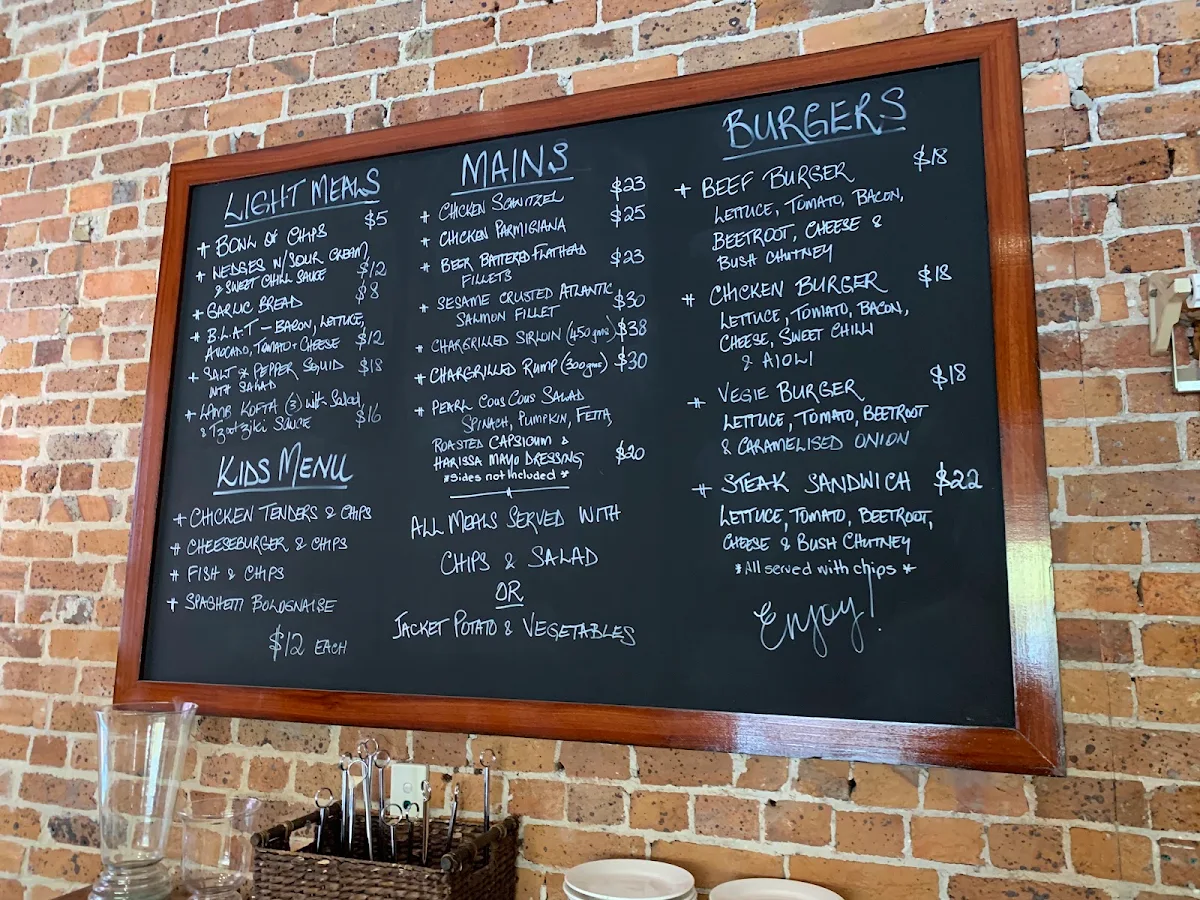 LIGHT MEALS
+ BOWL OF CHIPS $5
+ WEDGES W/SOUR CREAM
& SWEET CHILLI SAUCE $12
+ GARLIC BREAD $8
+ B.L.A.T - BACON, LETTUCE,
AVOCADO, TOMATO + CHEESE $12
+ SALT & PEPPER SQUID $18
WITH SALAD
+ LAMB KOFTA (3) with Salad,
& Tzaotziki SAUCE $16
KIDS MENU
+ CHICKEN TENDERS & CHIPS
+ CHEESEBURGER & CHIPS
+ FISH & CHIPS
+ SPAGHETTI BOLOGNAISE
$12 EACH
MAINS
+ CHICKEN SCHNITZEL $23
+ CHICKEN PARMIGIANA $25
+ BEER BATTERED FLATHEAD
FILLETS $23
+ SESAME CRUSTED ATLANTIC
SALMON FILLET $30
+ CHARGRILLED SIRLOIN (450gms) $38
+ CHARGRILLED RUMP (300gms) $30
+ PEARL COUS COUS SALAD
SPINACH, PUMPKIN, FETTA,
ROASTED CAPSICUM &
HARISSA MAYO DRESSING $20
*Sides not Included*
ALL MEALS SERVED WITH
CHIPS & SALAD
OR
JACKET POTATO & VEGETABLES
BURGERS
+ BEEF BURGER $18
LETTUCE, TOMATO, BACON,
BEETROOT, CHEESE &
BUSH CHUTNEY
+ CHICKEN BURGER $18
LETTUCE, TOMATO, BACON,
CHEESE, SWEET CHILLI
& AIOLI
+ VEGIE BURGER $18
LETTUCE, TOMATO, BEETROOT
& CARAMELISED ONION
+ STEAK SANDWICH $22
LETTUCE, TOMATO, BEETROOT,
CHEESE & BUSH CHUTNEY
*All served with chips*
Enjoy!